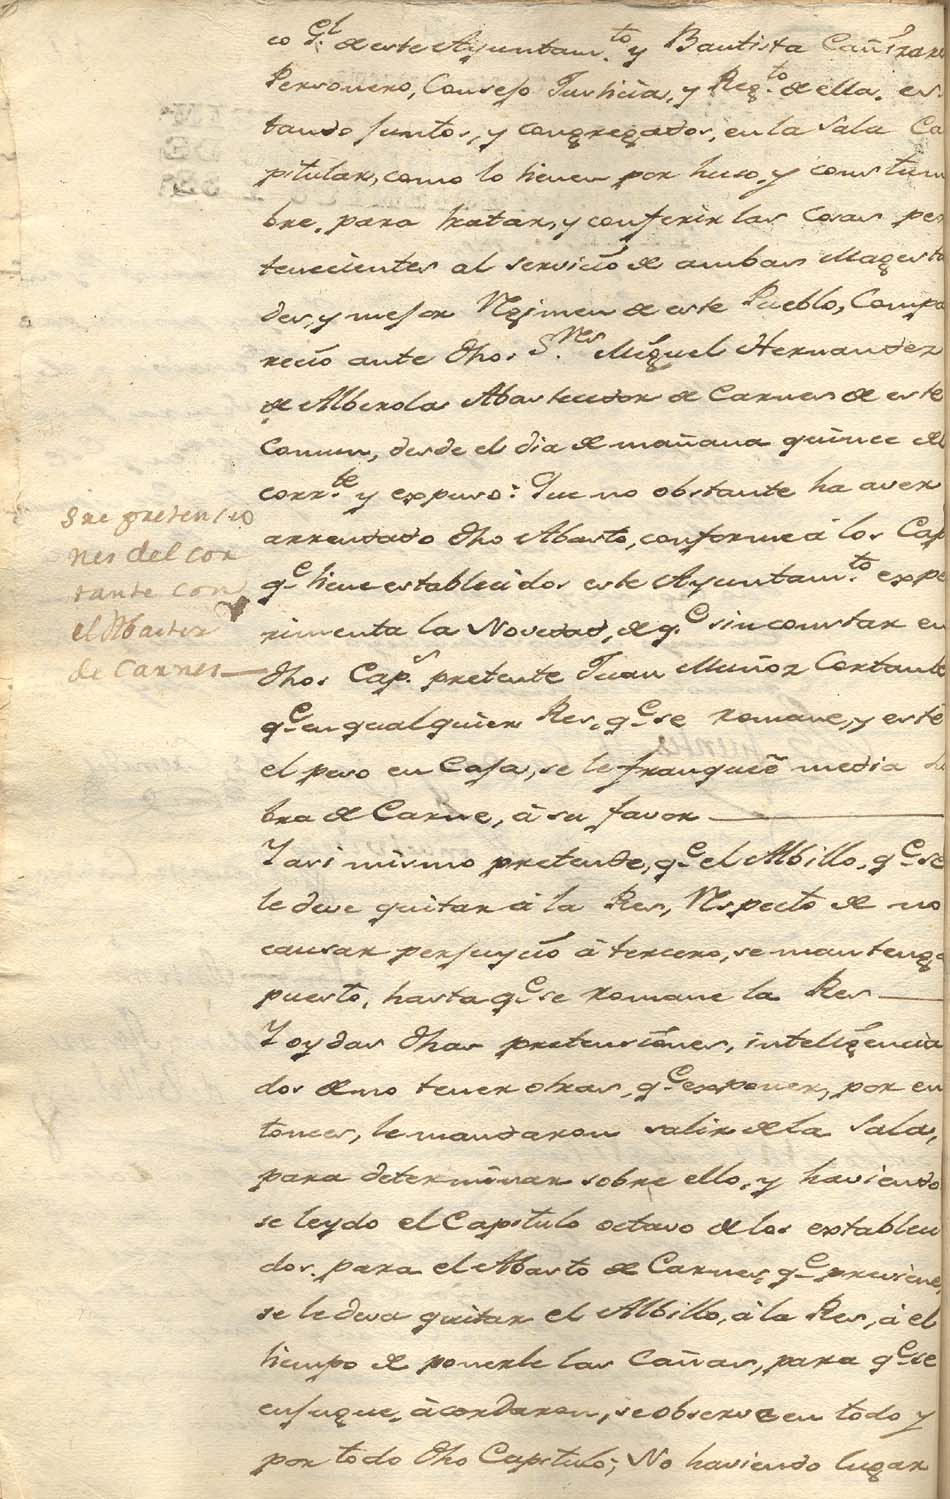 co G.l de este Ayuntam.to y Bautista Cañizare
Personero, Consejo Justicia, y Reg.to de ella. es
tando juntos, y congregados, en la Sala Ca
pitular, como lo tienen por huso, y constum
bre, para tratar, y conferir las cosas per
tenecientes al servicio de ambas Magesta
des, y mejor Regimen de este Pueblo, Compa
recio ante dhos S.res Miguel Hernandez
de Alberola Abastecedor de Carnes de este
Comun, desde el dia de mañana quince del
corr.te y expuso: Que no obstante ha aver
arrendado dho Abasto, conforme á los Cap
q.e tiene establecidos este Ayuntam.to expe
rimenta la Novedad, de q.e sin constar en
dhos Cap.s pretente Juan Muñoz Cortante
q.e en qualquier Res, q.e se romane, y esté
el peso en Casa, se le franqueé media li
bra de Carne, á su favor
Y asi mismo pretende, q.e el Albillo, q.e se
le deve quitar á la Res, Respecto de no
causar perjuycio á tercero, se mantenga
puesto, hasta q.e se romane la Res
Y oydas dhas pretensiones, inteligencia
dos de no tener otras, q.e exponer, por en
tonces, le mandaron salir de la Sala,
para determinar sobre ello, y haviendo
se leydo el Capitulo octavo de los estableci
dos para el Abasto de Carnes, q.e previene,
se le deva quitar el Albillo, á la Res, á el
tiempo de ponerle las Cañas, para q.e se
enjugue, acordaron, se observe en todo y
por todo dho Capitulo; No haviendo lugar
Sre pretensio
nes del cor
tante con
el Abastez
de Carnes